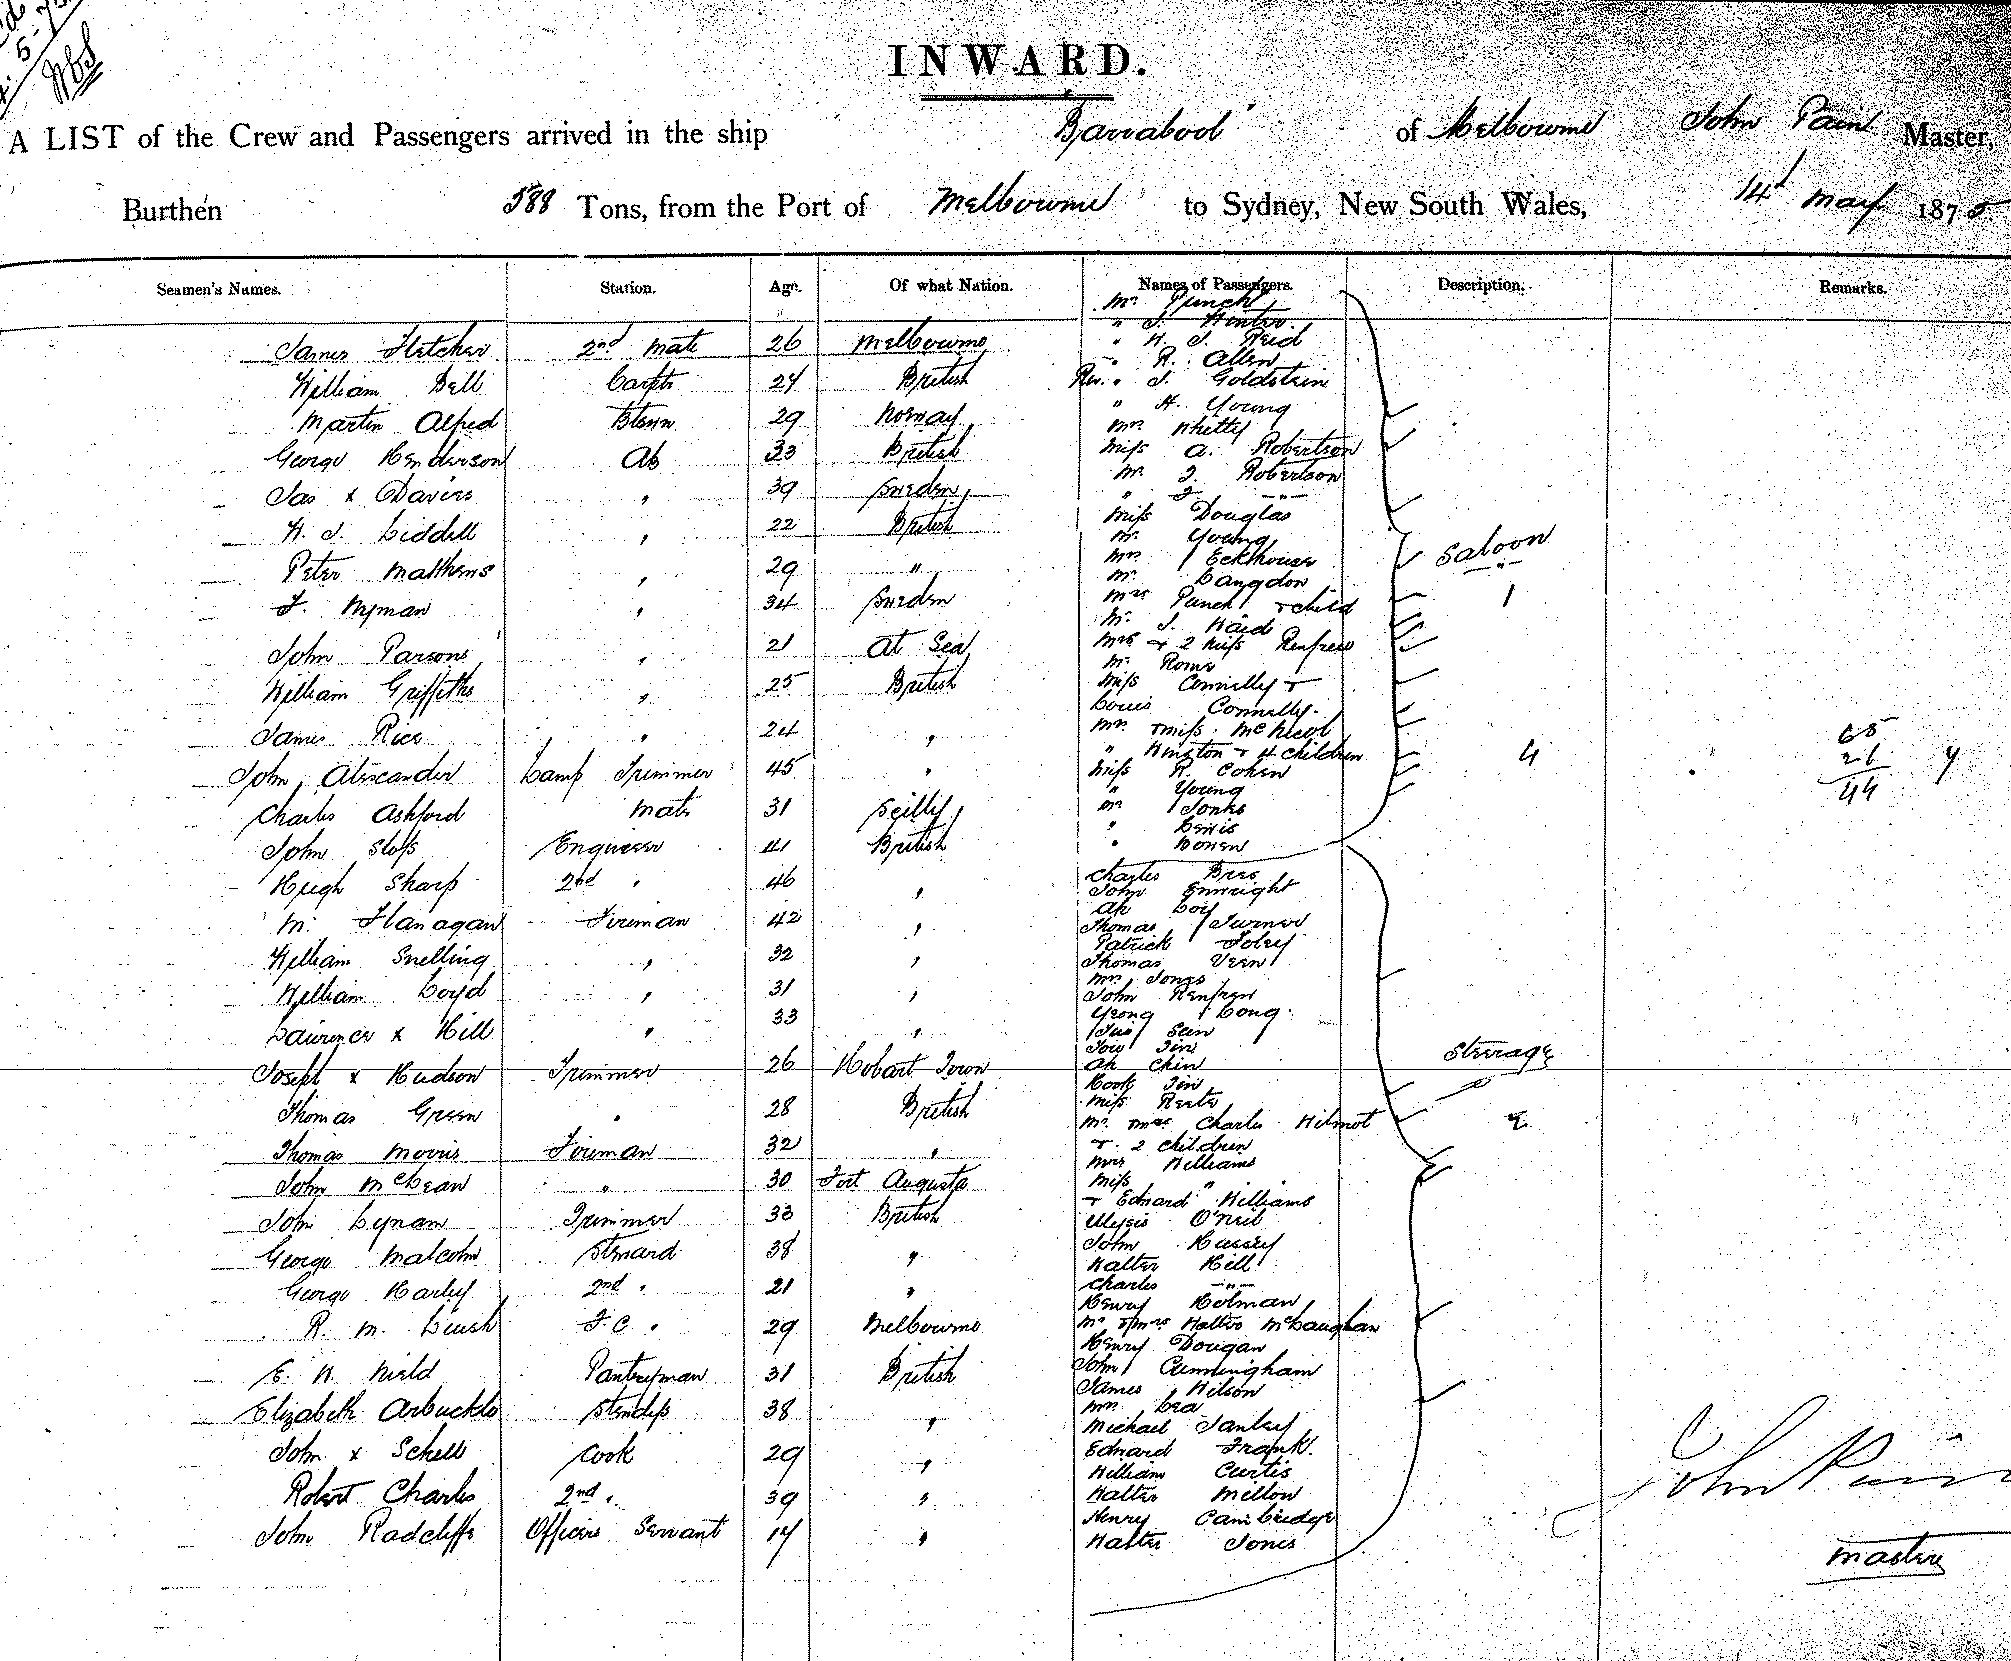 INWARD.
A LIST of the Crew and Passengers arrived in the ship Barrabool of Melbourne John Pain Master,
Burthen 588 Tons, from the Port of Melbourne to Sydney, New South Wales, 14th May 1875
Seamen's Names. Station. Age. Of what Nation. Names of Passengers. Description. Remarks.
James Fletcher 2nd Mate 26 Melbourne
William Bell Carptr 24 British
Martin Alfred 29 Norway
George Henderson Ab 33 British
Jas x Davies " 39 Sweden
W. J. Liddell " 22 British
Peter Matthews " 29 "
F. Nyman " 34 Sweden
John Parsons " 21 At Sea
William Griffiths " 25 British
James Rice " 24 "
John Alexander Lamp Trimmer 45 "
Charles Ashford Mate 31 Scilly
John Sloss Engineer 41 British
Hugh Sharp 2nd " 46 "
M. Flanagan Fireman 42 "
William Snelling " 32 "
William Loyd " 31 "
Laurence x Hill " 33 "
Joseph x Hudson Trimmer 26 Hobart Town
Thomas Green " 28 British
Thomas Morris Fireman 32 "
John McBean " 30 Fort Augusta
John Lynam Trimmer 33 British
George Malcolm Steward 38 "
George Harley 2nd " 21 "
R. M. Leush F.C. " 29 Melbourne
E. W. Nield Pantryman 31 British
Elizabeth Arbuckle Stewdss 38 "
John x Schell Cook 29 "
Robert Charles 2nd " 39 "
John Radcliffe Officers Servant 17 "
Mr. Punch
" J. Hunter
" W. J. Reid
" R. Allen
Rev. " J. Goldstein
" H. Young
Mr. Whitty
Miss A. Robertson
Mr. J. Robertson
" J. "
Miss Douglas
Mr. Young
Mrs. Eckhouse
Mr. Langdon
Mrs Punch & child 1
Mr. J. Ward
Mrs & 2 Miss Renfrew
Mr. Rome
Miss Connelly &
Louis Connelly.
Mrs. & Miss McNicol
" Winston & 4 children 4
Miss R. Cohen
" Young
Mr Jonks
" Lewis
" Bowen
Saloon
Charles Bree
John Enwright
Ah Loy
Thomas Turner
Patrick Foley
Thomas Veen
Mrs. Jones
John Renfrew
Yeong Long
Sun
Tow Tin
Ah Chin
Hook Tin
Miss
Mr. & Mrs Charles Wilmot
& 2 children 2
Mrs Williams
Miss "
& Edward Williams
Ulysis O'Neil
John Hussey
Walter Hill
Charles "
Henry Holman
Mr & Mrs Walter McLaughlan
Henry Dougan
John Cunningham
James Wilson
Mrs. Lea
Michael Tanley
Edward Frank.
William Curtis
Walter Mellow
Henry Cambridge
Walter Jones
Steerage
65
26
44
7
John Pain
Master